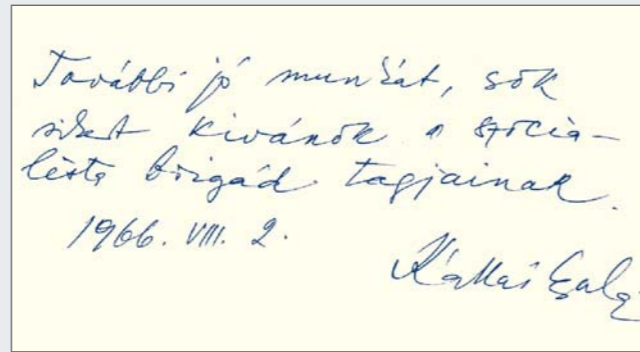 További jó munkát, sok
sikert kívánok a szocia-
lista brigád tagjainak.
1966. VIII. 2.
Kállai Gyula